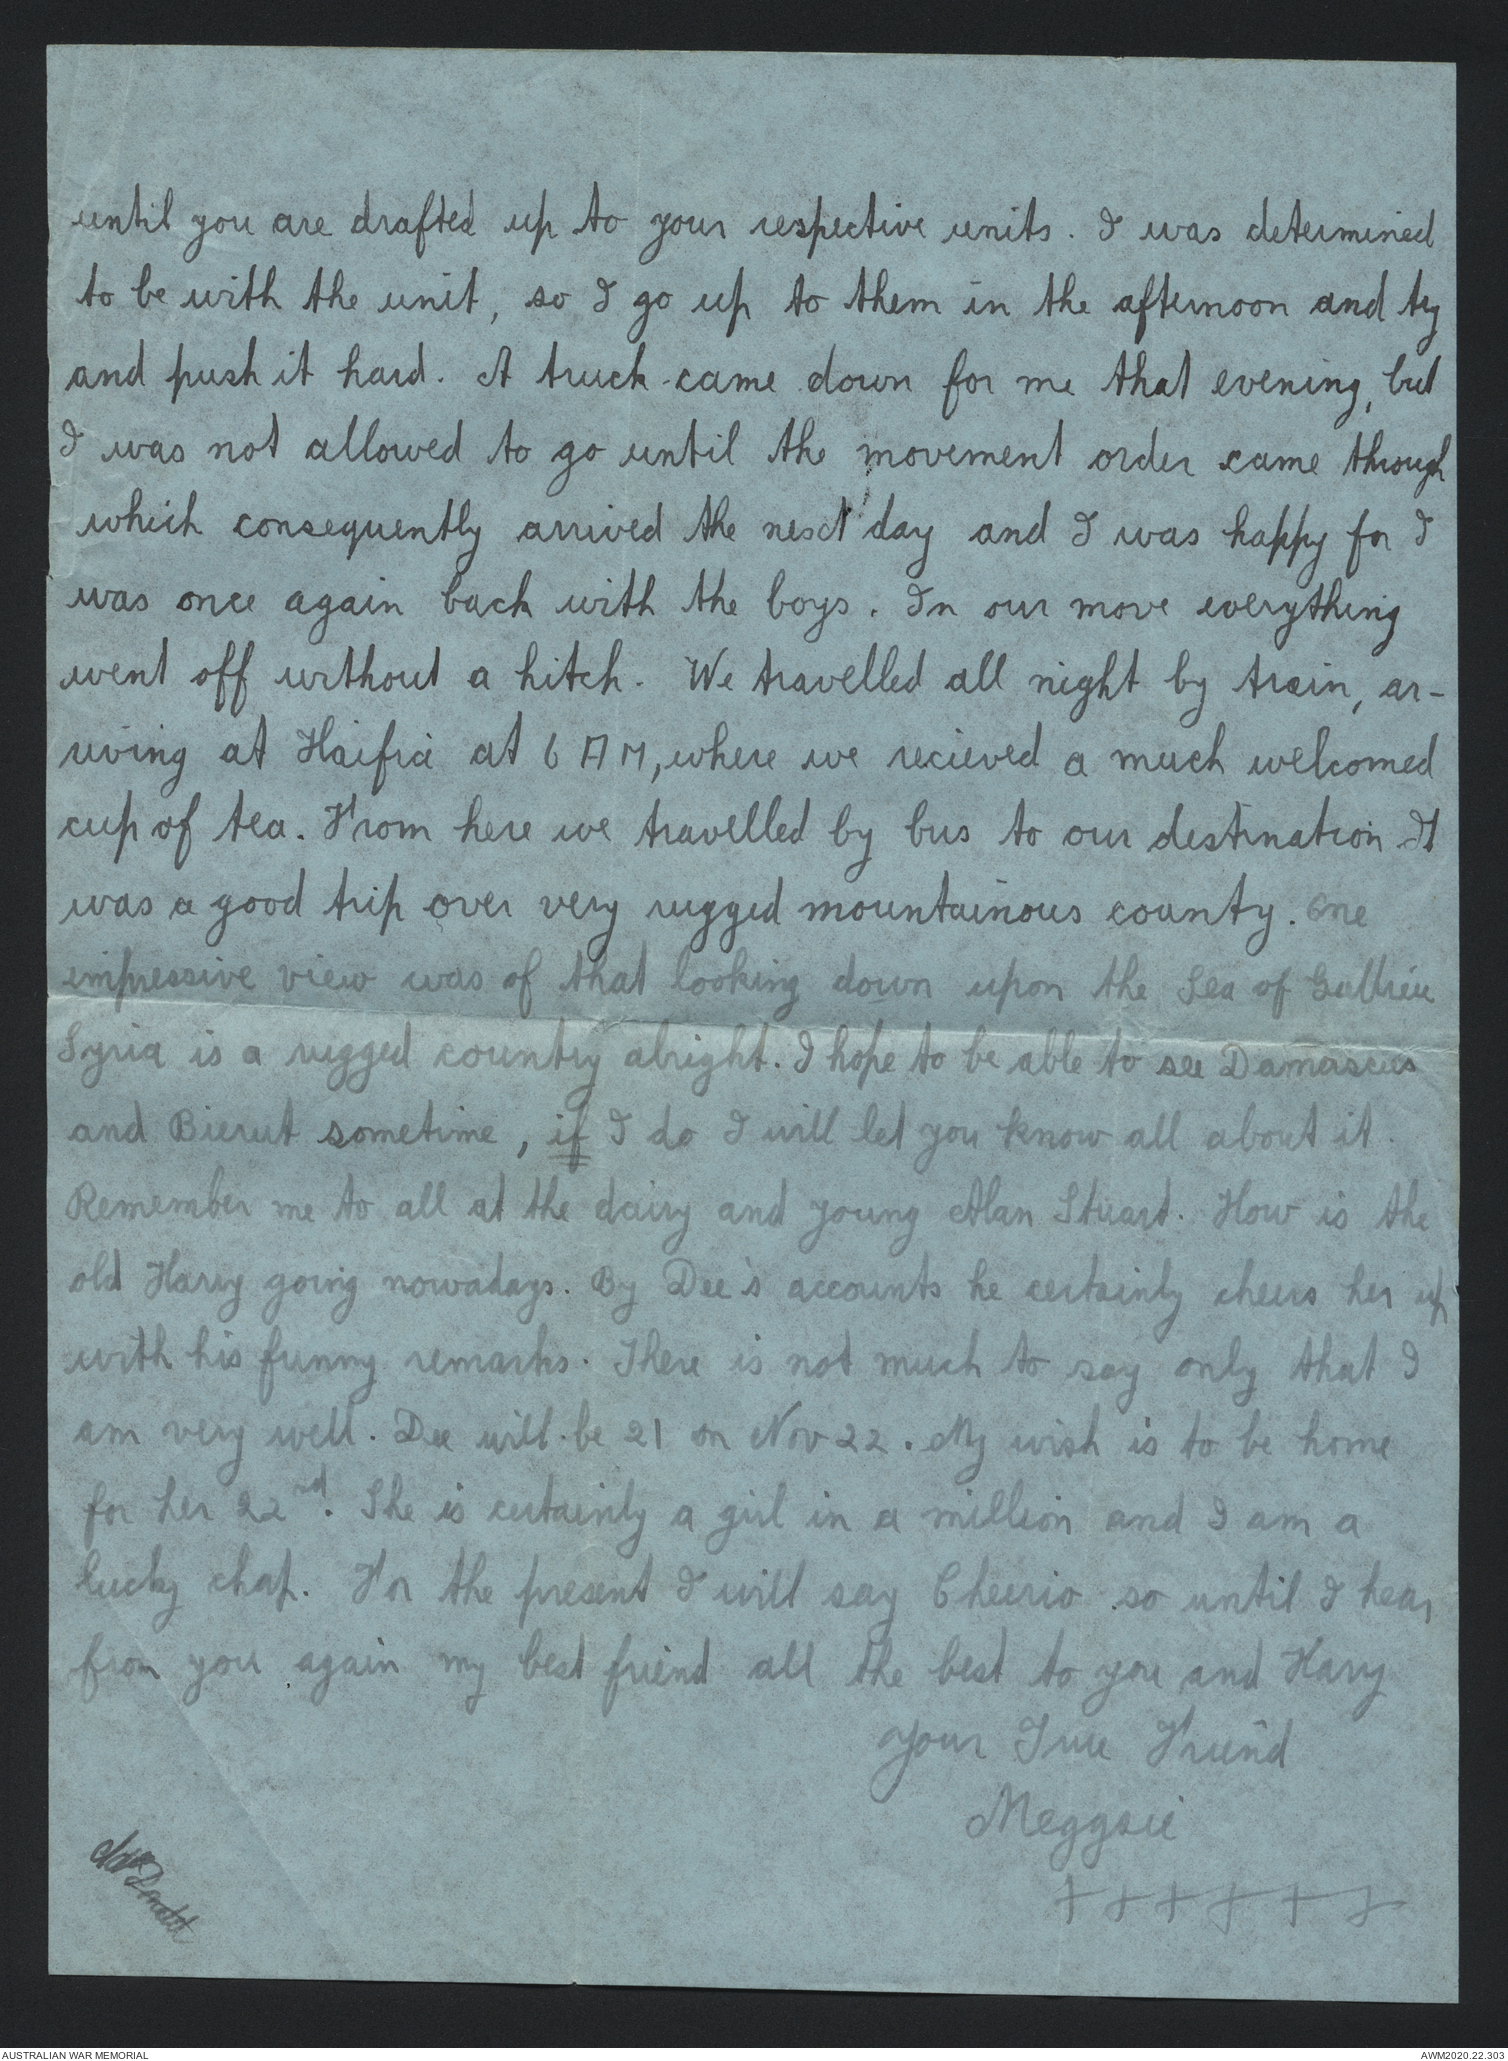 until you are drafted up to your respective units. I was determined
to be with the unit, so I go up to them in the afternoon and try
and push it hard. A truck came down for me that evening, but
I was not allowed to go until the movement order came through
which consequently arrived the next day and I was happy for I
was once again back with the boys. In our move everything
went off without a hitch. We travelled all night by train, ar-
riving at Haifia at 6 AM, where we recieved a much welcomed
cup of tea. From here we travelled by bus to our destination It
was a good trip over very rugged mountainous county. One
impressive view was of that looking down upon the Sea of Gallilee
Syria is a rugged country alright. I hope to be able to see Damascus
and Bierut sometime, if I do I will let you know all about it.
Remember me to all at the dairy and young Alan Stuart. How is the
old Harry going nowadays. By Dee's accounts he certainly cheers her up
with his funny remarks. There is not much to say only that I
am very well. Dee will be 21 on Nov 22. My wish is to be home
for her 22nd. She is certainly a girl in a million and I am a
lucky chap. For the present I will say Cheerio so until I hear
from you again my best friend all the best to you and Harry
Your True Friend
Meggsie
+ + + + + +
AUSTRALIAN WAR MEMORIAL
AWM2020.22.303